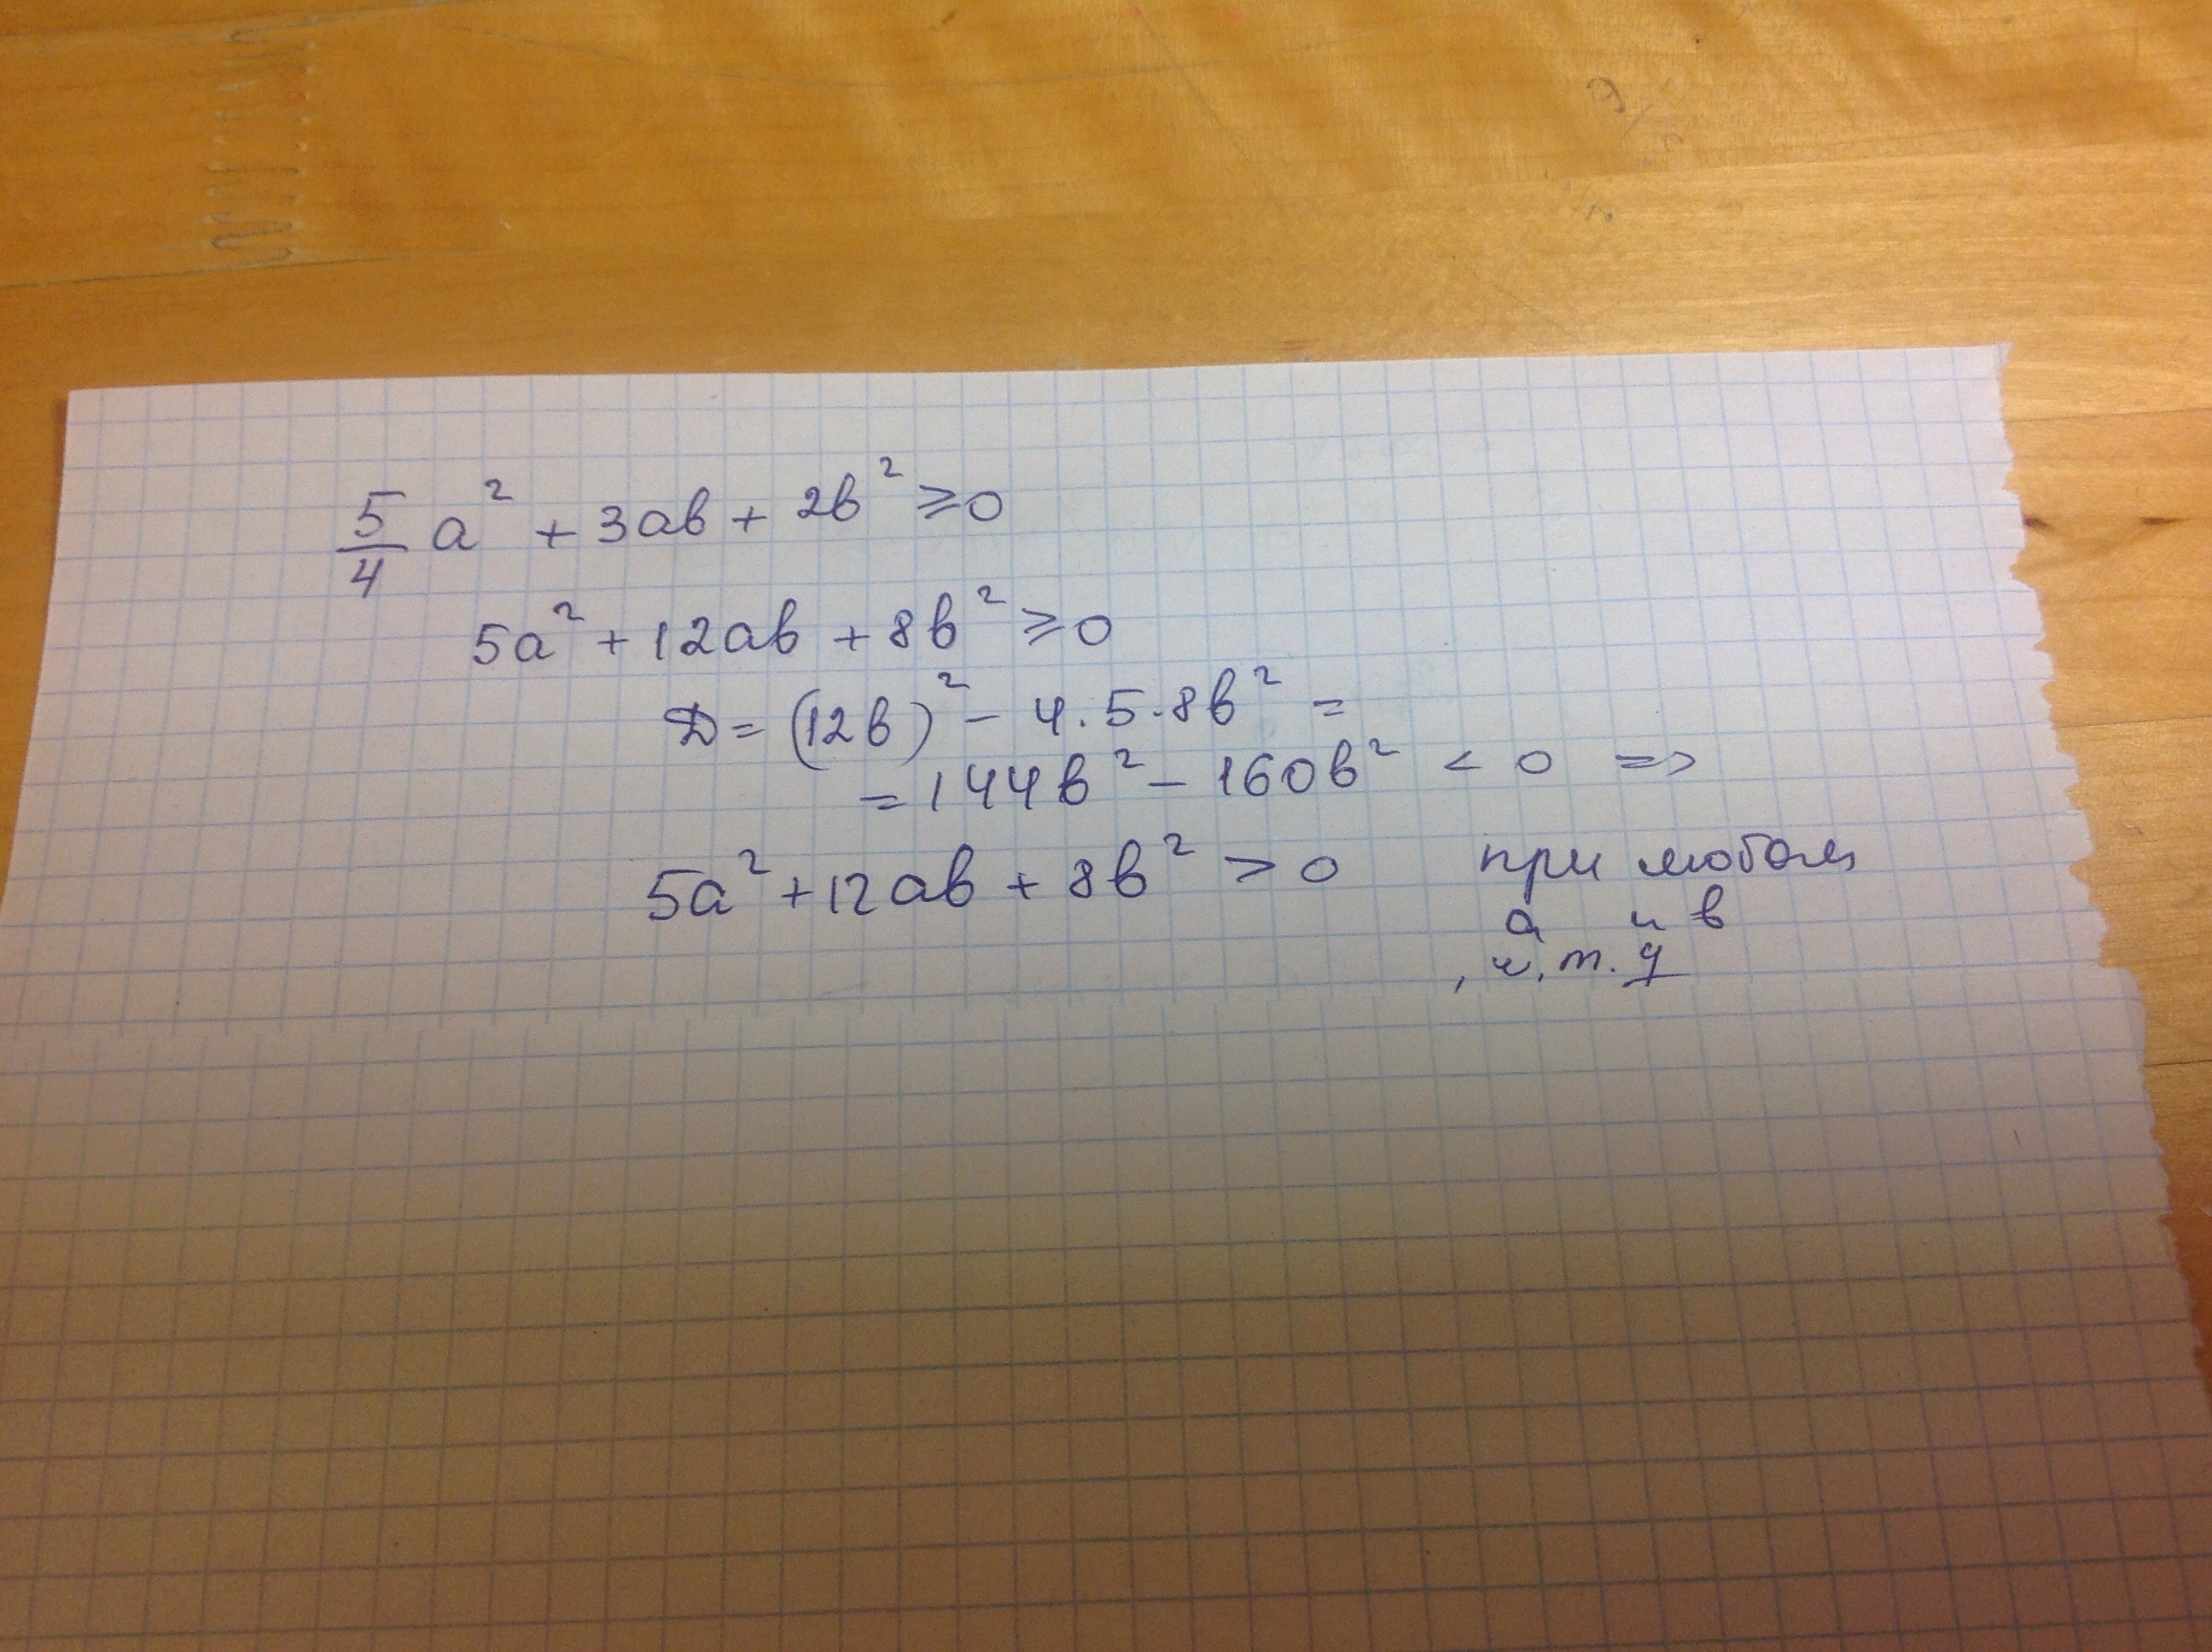 5/4 a² + 3ab + 2b² ≥ 0
5a² + 12ab + 8b² ≥ 0
D = (12b)² - 4·5·8b² =
= 144b² - 160b² < 0 =>
5a² + 12ab + 8b² > 0 при любом
a и b
, ч.т.д